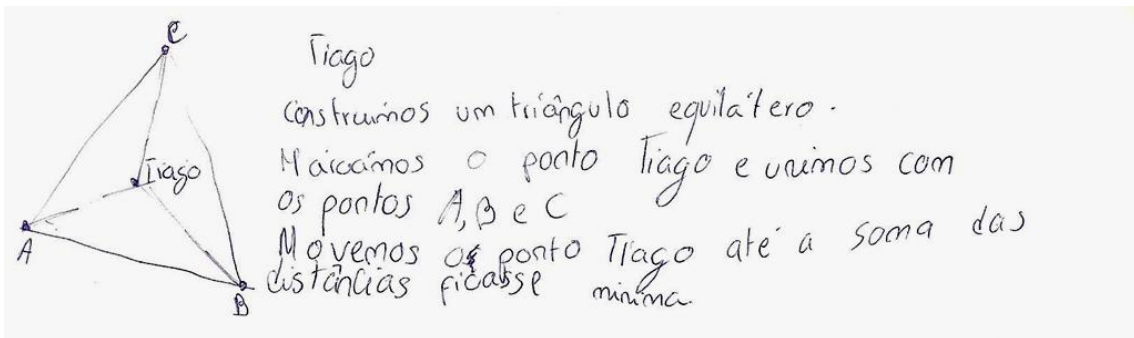 C
Tiago
Construimos um triângulo equilátero.
Marcámos o ponto Tiago e unimos com
Tiago
os pontos A, B e C
A
Movemos o ponto Tiago até a soma das
distâncias ficasse minima.
B